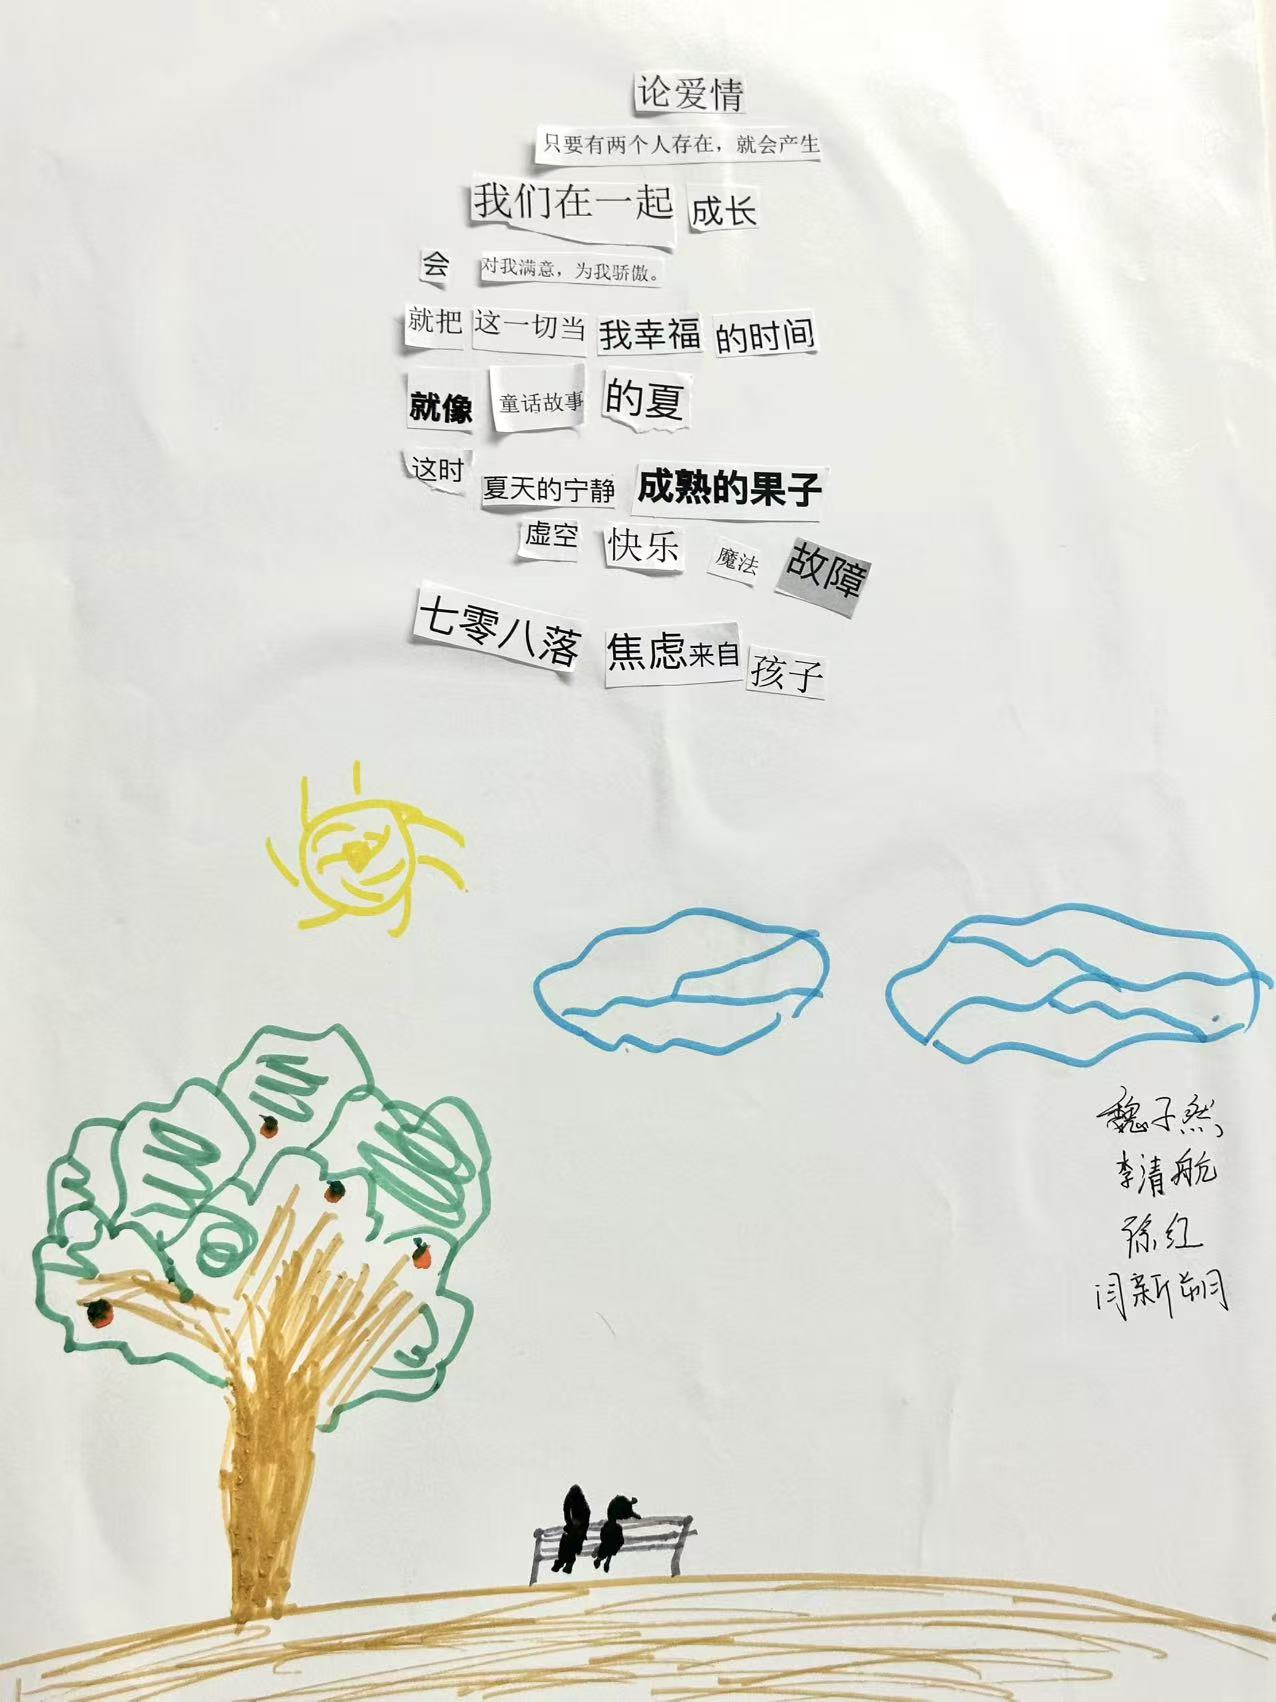 论爱情
只要有两个人存在，就会产生
我们在一起 成长
会 对我满意，为我骄傲。
就把 这一切当 我幸福 的时间
就像 童话故事 的夏
这时 夏天的宁静 成熟的果子
虚空 快乐 魔法 故障
七零八落 焦虑来自 孩子
魏子然,
李清航
徐红
闫新朔